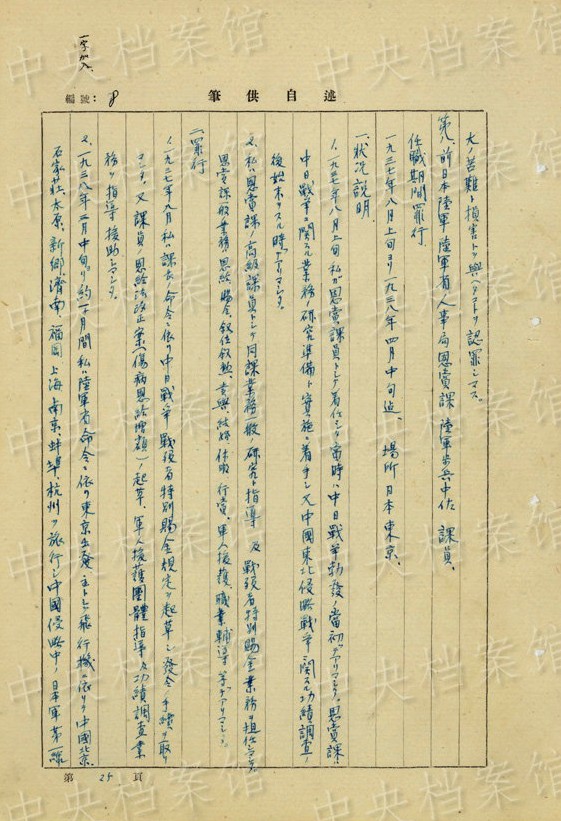 一字加入
編號：8
述自供筆
大ノ苦難ト損害トヲ與ヘタコトヲ認罪シマス。
第八、前日本陸軍陸軍省人事局恩賞課 陸軍歩兵中佐 課員、
任職期間罪行
一九三七年八月上旬ヨリ一九三八年四月中旬迄、 場所 日本東京、
一、状況説明
1、一九三七年八月上旬私ガ恩賞課員トシテ着任シタ當時ハ中日戰爭勃發ノ當初デアリマシタ。恩賞課ハ
中日戰爭ニ関スル業務ノ研究準備ト實施ニ着手シ又中國東北侵略戰爭ニ関スル功績調査ノ
後始末ヲスル時デアリマシタ。
2、私ハ恩賞課ノ高級課員トシテ同課業務一般ノ研究ト指導 及 戰歿者特別賜金業務ヲ担任シタ。
恩賞課ノ業務ハ恩給、賜金、叙位叙勲、賞與、休暇、行賞、軍人援護、職業輔導等デアリマシタ。
二、罪行
1、一九三七年九月私ハ課長ノ命令ニ依リ中日戰爭戰歿者特別賜金規定ヲ起草シ發令ノ手續ヲ取リ
マシタ。又課員ノ恩給法改正案（傷病恩給増額）ノ起草、軍人援護團體指導及功績調査業
務ヲ指導援助シマシタ。
2、一九三八年二月中旬ヨリ約一ヶ月間私ハ陸軍省命令ニ依リ東京出發主トシテ飛行機ニ依リ中國北京、
石家莊、太原、新郷、濟南、福岡、上海、南京、蚌埠、杭州ヲ旅行シ中國侵略中ノ日本軍第一線
第 25 頁
中央档案馆